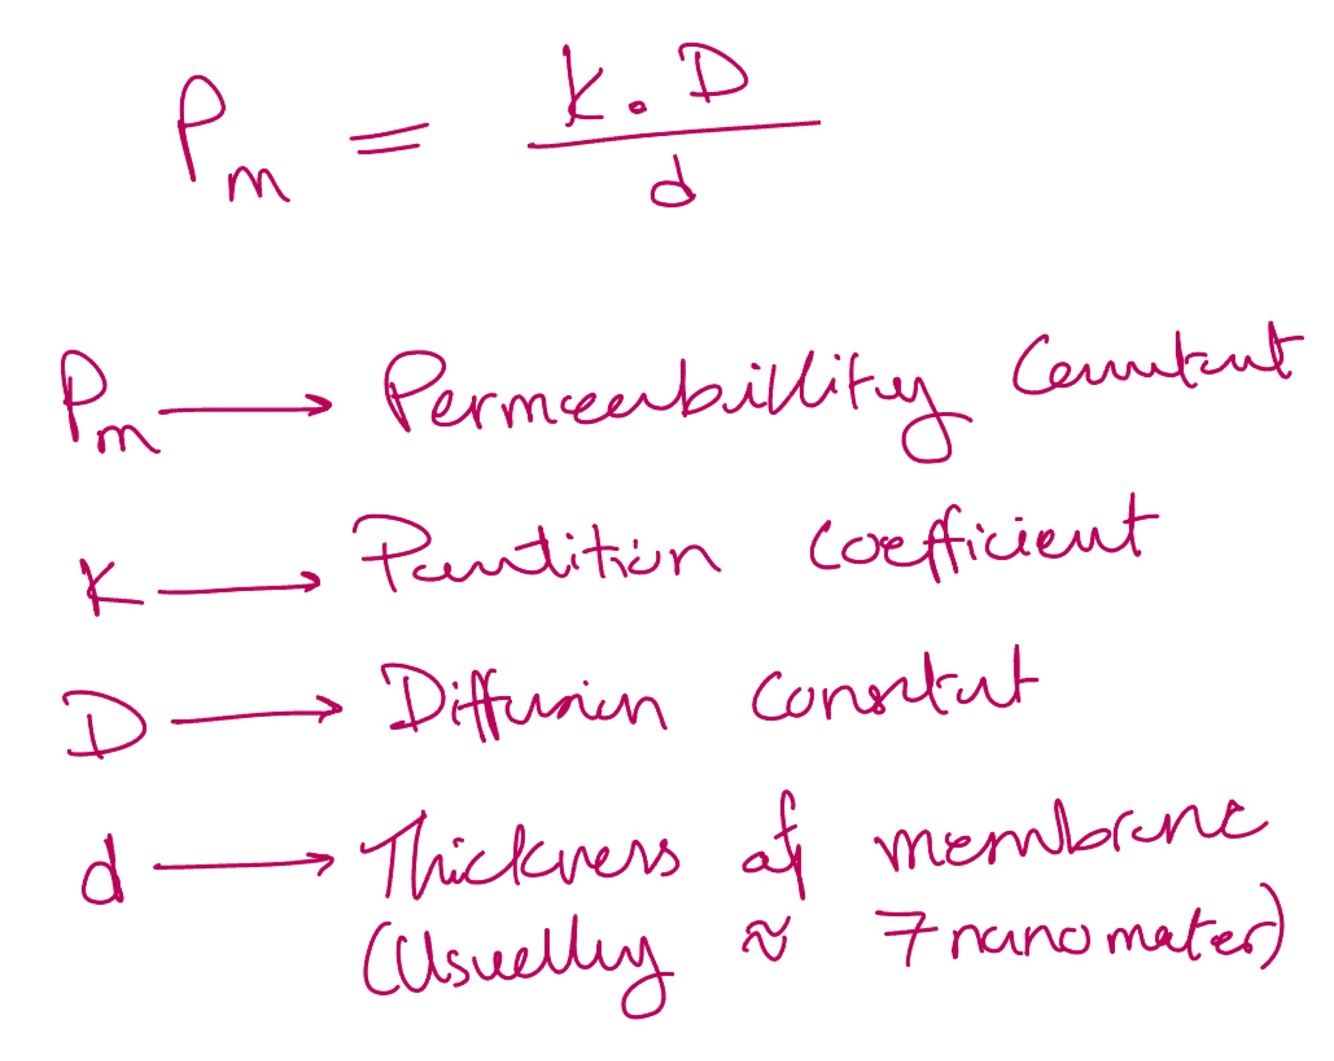 Pm = K . D / d
Pm → Permeabillity Constant
K → Partition coefficient
D → Diffusion constant
d → Thickness of membrane
(Usually ≈ 7 nanometer)